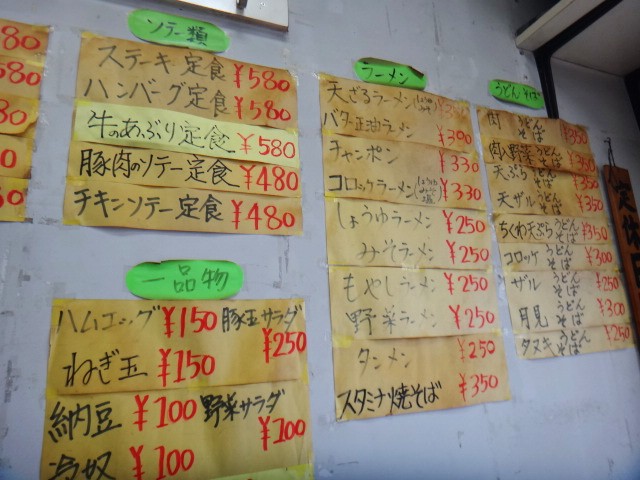 580
ソテー類
ステーキ定食 ¥580
ハンバーグ定食 ¥580
牛のあぶり定食 ¥580
豚肉のソテー定食 ¥480
チキンソテー定食 ¥480
一品物
ハムエッグ ¥150
豚玉サラダ ¥250
ねぎ玉 ¥150
納豆 ¥100
野菜サラダ ¥100
冷奴 ¥100
ラーメン
天ざるラーメン
バター正油ラーメン ¥390
チャンポン ¥330
コロッケラーメン ¥330
しょうゆラーメン ¥250
みそラーメン ¥250
もやしラーメン ¥250
野菜ラーメン ¥250
タンメン ¥250
スタミナ焼そば ¥350
うどんそば
肉うどんそば ¥350
肉入野菜うどんそば ¥350
天ぷらうどんそば ¥350
天ザルうどんそば ¥350
ちくわ天ぷらうどんそば ¥350
コロッケうどんそば ¥300
ザルうどんそば ¥250
月見うどんそば ¥300
タヌキうどんそば ¥250
定休日